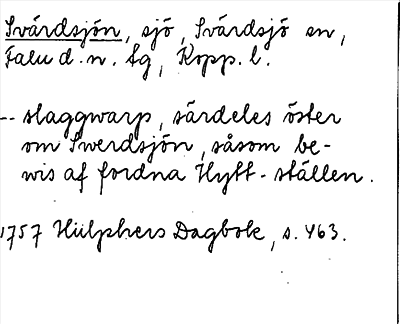 Svärdsjön, sjö, Svärdsjö sn,
Falu d. n. tg, Kopp. l.
-- slaggwarp, särdeles öster
om Swerdsjön, såsom be-
wis af fordna Hytt-ställen.
1757 Hülphers Dagbok, s. 463.